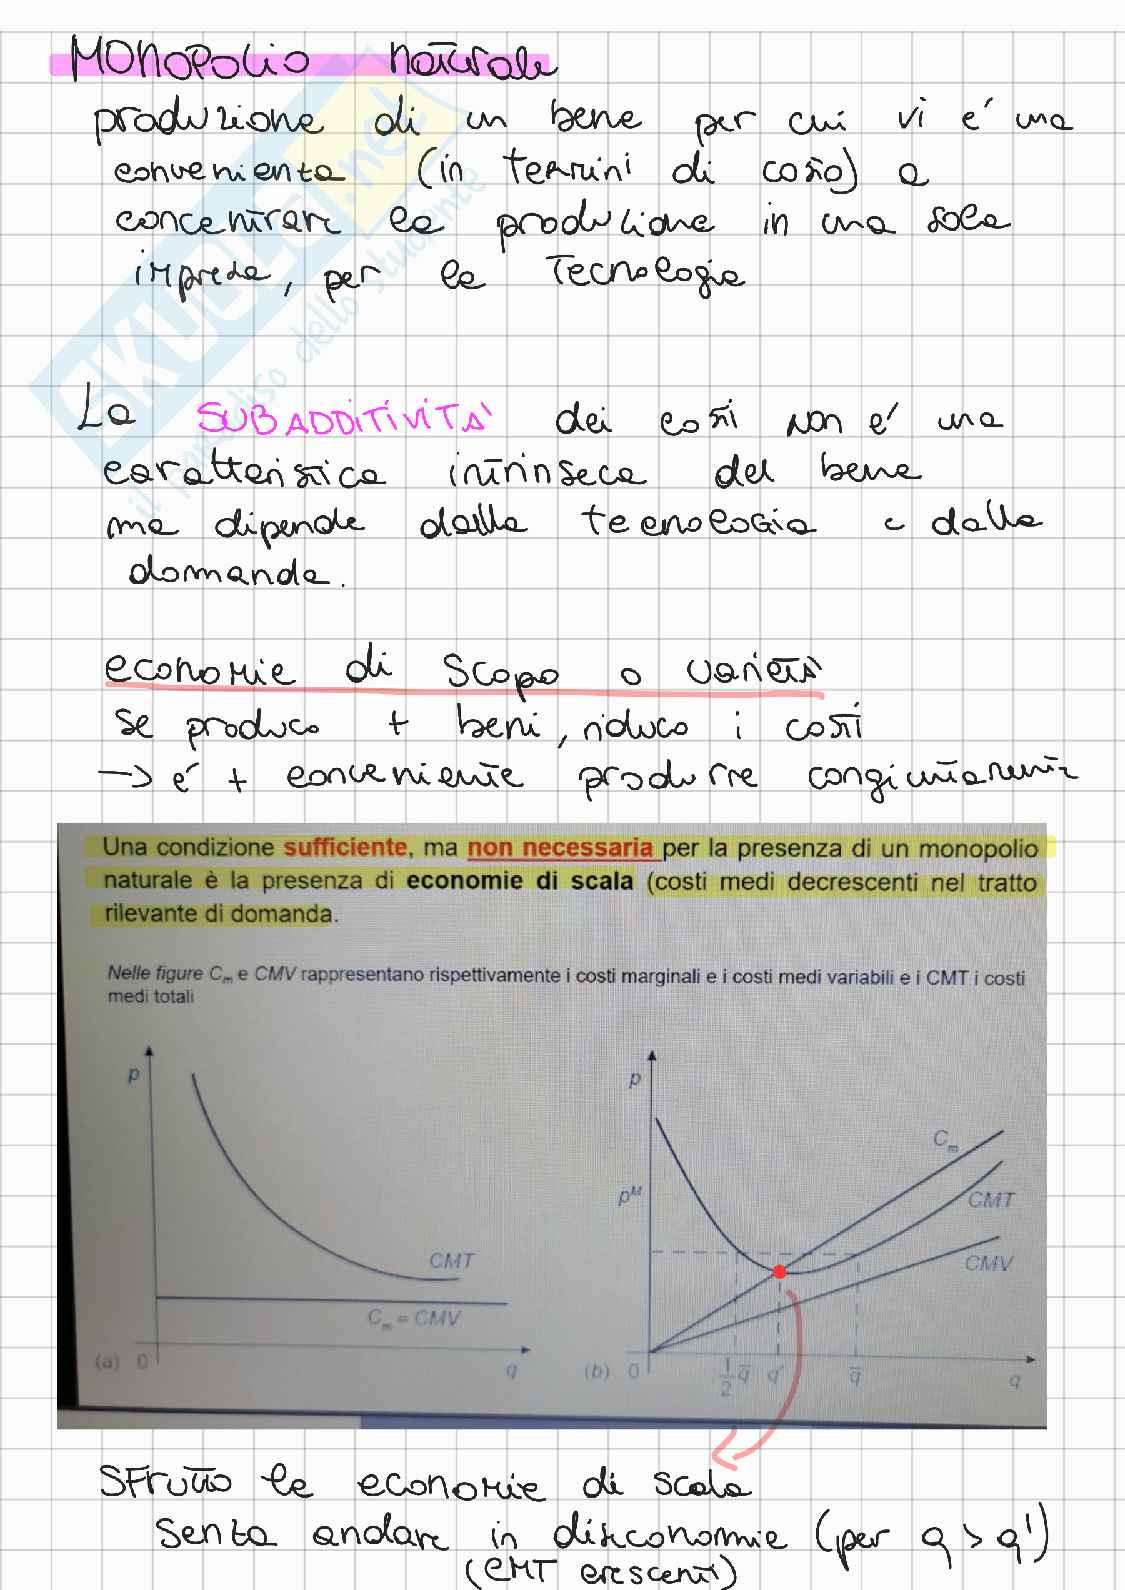 MONOPOLIO naturale
produzione di un bene per cui vi e' una
convenienza (in termini di costo) a
concentrare la produzione in una sola
impresa, per la tecnologia
SKUOLA.net
il paradiso dello studente
La SUBADDITIVITA' dei costi non e' una
caratteristica intrinseca del bene
ma dipende dalla tecnologia e dalla
domanda.
economie di scopo o varietà
se produco + beni, riduco i costi
→ e' + conveniente produrre congiuntamente
Una condizione sufficiente, ma non necessaria per la presenza di un monopolio
naturale è la presenza di economie di scala (costi medi decrescenti nel tratto
rilevante di domanda.
Nelle figure Cm e CMV rappresentano rispettivamente i costi marginali e i costi medi variabili e i CMT i costi
medi totali
p
CMT
Cm = CMV
(a) 0
q
p
pM
Cm
CMT
CMV
(b) 0
1/2 q̅
q'
q̅
q
SFrutto le economie di scala
senza andare in diseconomie (per q > q')
(CMT crescenti)